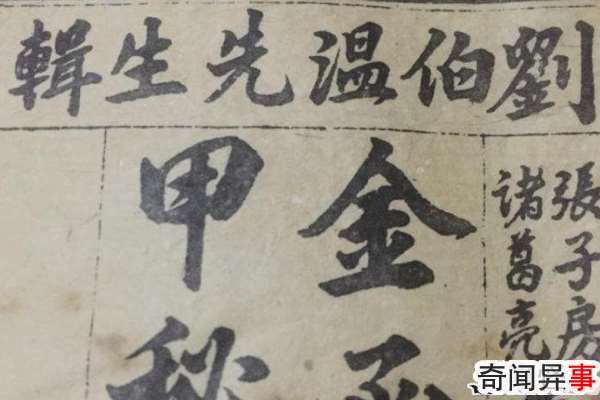 劉伯温先生輯
張子房
諸葛亮
金
甲秘
奇闻异事